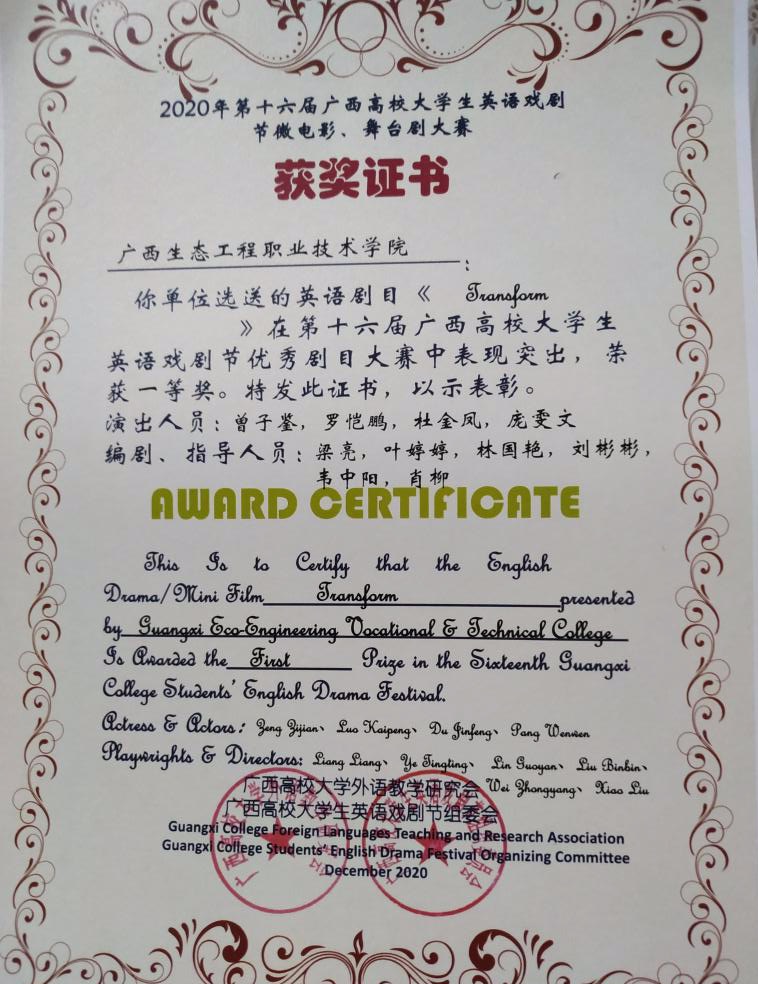 2020年第十六届广西高校大学生英语戏剧
节微电影、舞台剧大赛
获奖证书
广西生态工程职业技术学院：
你单位选送的英语剧目《 Transform
》在第十六届广西高校大学生
英语戏剧节优秀剧目大赛中表现突出，荣
获一等奖。特发此证书，以示表彰。
演出人员：曾子鉴，罗恺鹏，杜金凤，庞雯文
编剧、指导人员：梁亮，叶婷婷，林国艳，刘彬彬，
韦中阳，肖柳
AWARD CERTIFICATE
This Is to Certify that the English
Drama/Mini Film Transform presented
by Guangxi Eco-Engineering Vocational & Technical College
Is Awarded the First Prize in the Sixteenth Guangxi
College Students' English Drama Festival.
Actress & Actors: Zeng Zijian、 Luo Kaipeng、 Du Jinfeng、 Pang Wenwen
Playwrights & Directors: Liang Liang、 Ye Tingting、 Lin Guoyan、 Liu Binbin、
Wei Zhongyang、 Xiao Liu
广西高校大学外语教学研究会
广西高校大学生英语戏剧节组委会
Guangxi College Foreign Languages Teaching and Research Association
Guangxi College Students' English Drama Festival Organizing Committee
December 2020